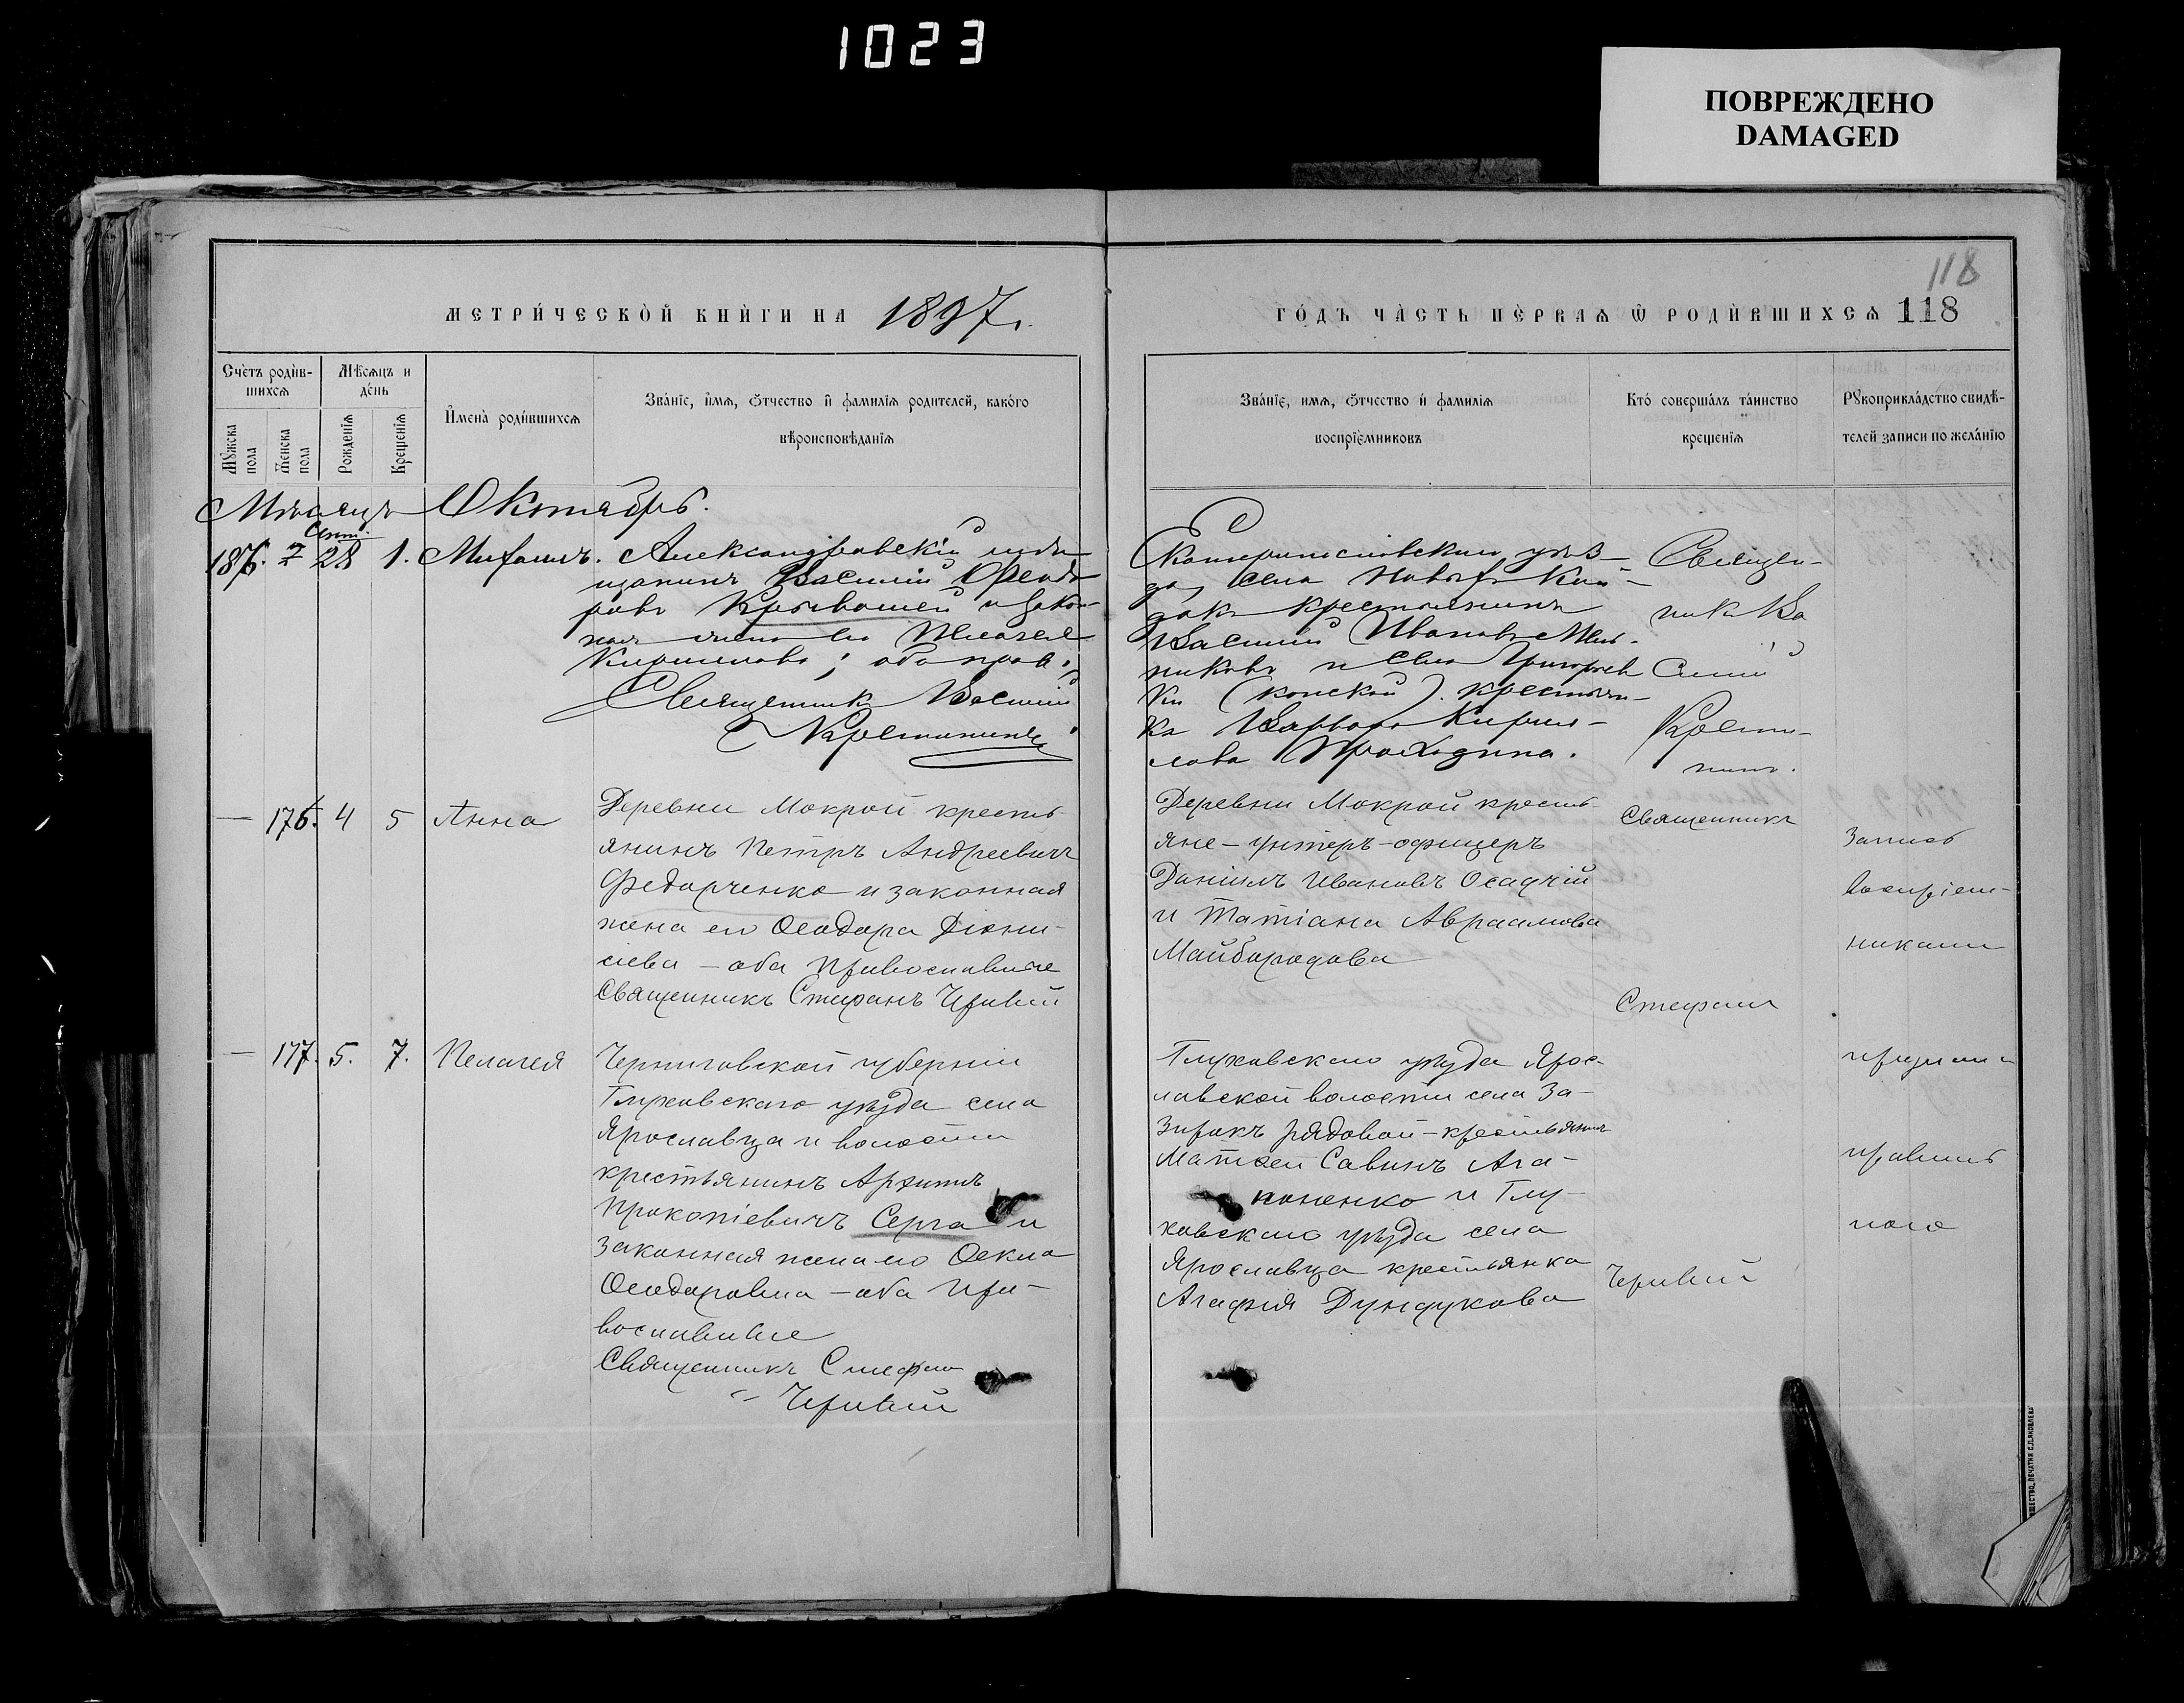 1023
ПОВРЕЖДЕНО
DAMAGED
118
МЕТРИ́ЧЕСКОЙ КНИ́ГИ НА 1897 г.
ГО́ДЪ ЧА́СТЬ ПЕ́РВАѦ Ѡ РОДИ́ВШИХСѦ 118
Сче́тъ роди́в-
шихсѧ
Мѣ́сѧцъ и
де́нь
Мꙋ́жска пола
Же́нска пола
Рожденїѧ
Крещенїѧ
И҆мена̀ роди́вшихсѧ
Зва́нїе, и҆́мѧ, ѻ҆́тчество и҆ фамилїѧ родителей, како́го
вѣроисповѣданїѧ
Зва́нїе, имѧ, ѻ҆́тчество и҆ фамилїѧ
воспрїе́мниковъ
Кто́ соверша́лъ та́инство
крещенїѧ
Рꙋкоприкла́дство свидѣ́-
телей записи по жела́нїю
Мѣсяцъ Октябрь.
Сент.
28 1. Михаилъ. Александровскій мѣ
щанинъ Василій Ѳеодо
ровъ Кривошей и закон-
ная жена его
Кириллова; оба прав.
Священникъ Василій
Крестининъ
Екатеринославскаго уѣз-
да, села Новыхъ Кай-
дакъ крестьянинъ
Василій Ивановъ Мель-
никовъ и села Григорьев
ки (конской) крестьян-
ка Варвара Кирил-
лова
Священ-
никъ Ва
силій
Крести-
нинъ.
— 176. 4 5 Анна
Деревни Мокрой кресть-
янинъ Петръ Андреевичъ
Федорченко и законная
жена его Ѳеодора Діони-
сіева — оба православные
Священникъ Стефанъ
Деревни Мокрой кресть-
яне — унтеръ-офицеръ
Даніилъ Ивановъ Осадчій
и Татіана Авраамова
Майбородова
Священникъ
Стефанъ
Запись
воспріем-
никами
— 177. 5. 7. Пелагея
Черниговской губерніи
Глуховскаго уѣзда села
Ярославца и волости
крестьянинъ Архипъ
Прокопіевичъ Серга и
законная жена его Ѳекла
Ѳеодоровна — оба пра-
вославные
Священникъ Стефанъ
Глуховскаго уѣзда Ярос-
лавской волости села За-
рядовой — крестьянинъ
Матѳей Савинъ Ага-
поненко и Глу-
ховскаго уѣзда села
Ярославца крестьянка
Агафія Дундукова